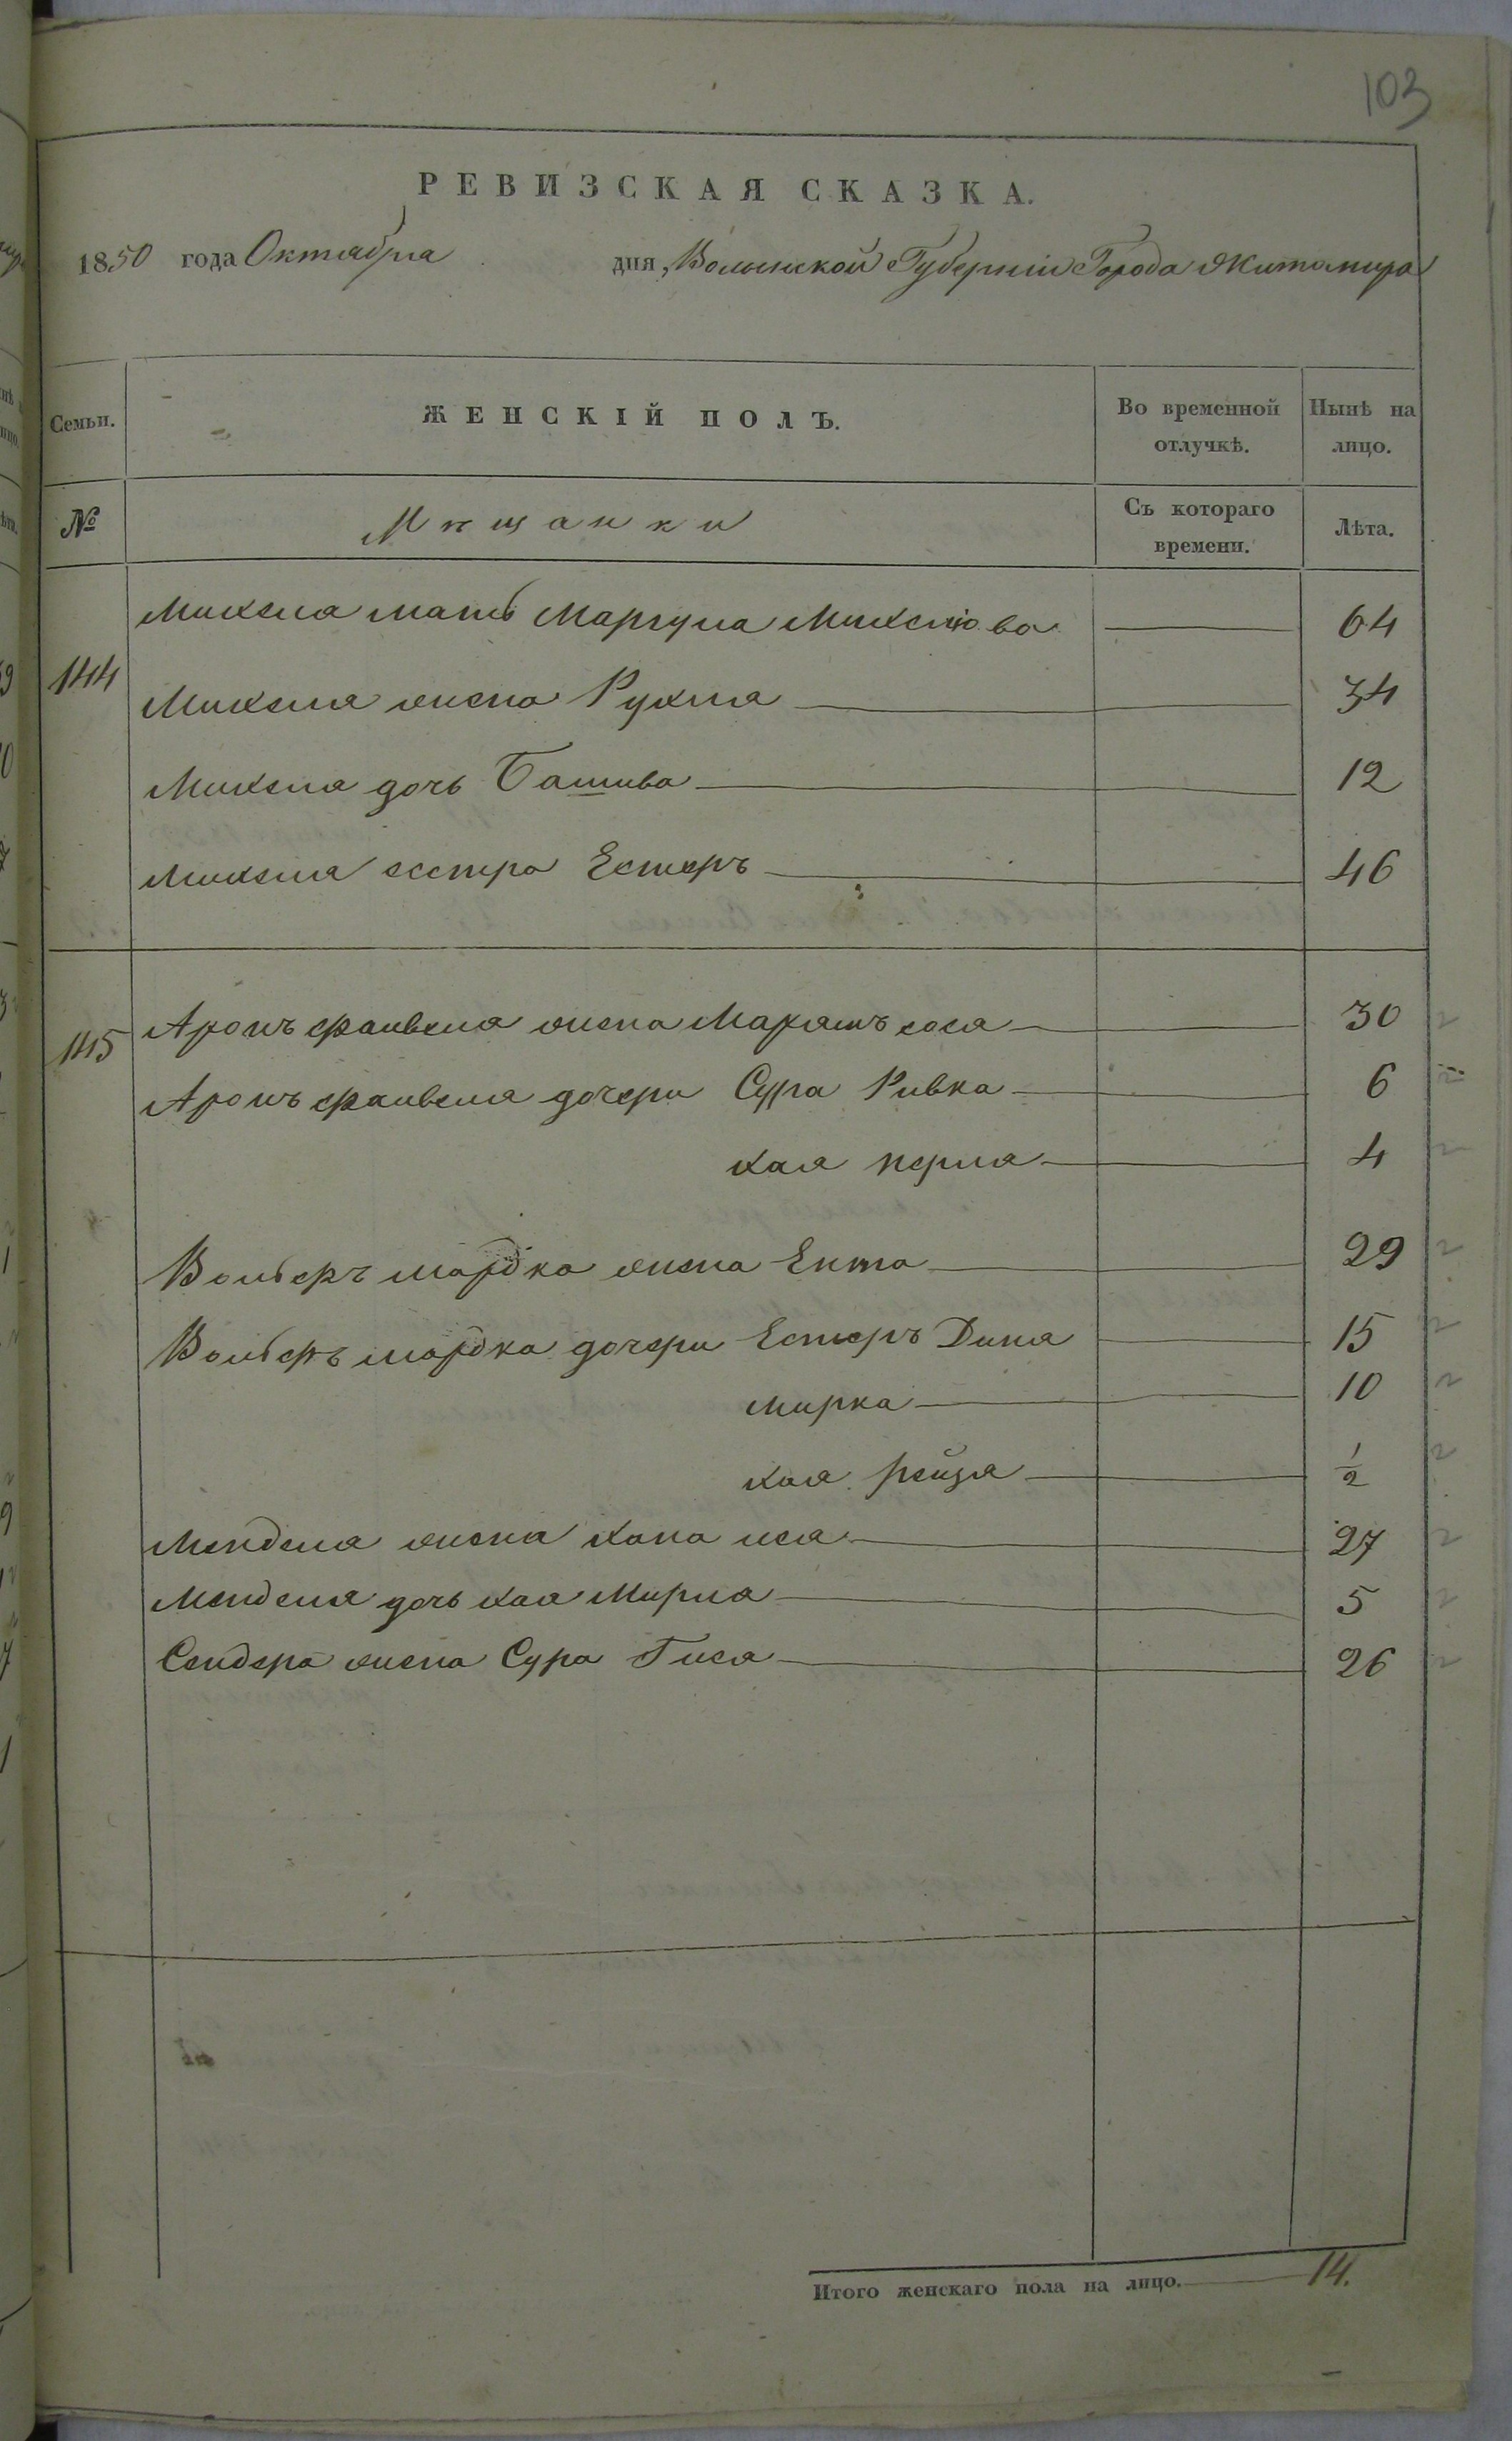 103
РЕВИЗСКАЯ СКАЗКА.
1850 года Октября дня, Волынской Губерніи Города Житомира
Семьи. ЖЕНСКІЙ ПОЛЪ. Во временной отлучкѣ. Нынѣ на лицо.
№ Мѣщанки Съ котораго времени. Лѣта.
Михеля мать Маргуля Михелiова 64
144 Михеля жена Рухля 34
Михеля дочь Башива 12
Михеля сестра Естеръ 46
145 Аронъ Файвеля жена Марямъ хася 30
Аронъ Файвеля дочери Сура Ривка 6
хая перля 4
Вольберъ мордка жена Ента 29
Вольберъ мордка дочери Естеръ Диня 15
мирка 10
хая рейзя 1/2
Менделя жена хана лея 27
Менделя дочь хая Мирля 5
Сендера жена Сура Гися 26
Итого женскаго пола на лицо. 14.